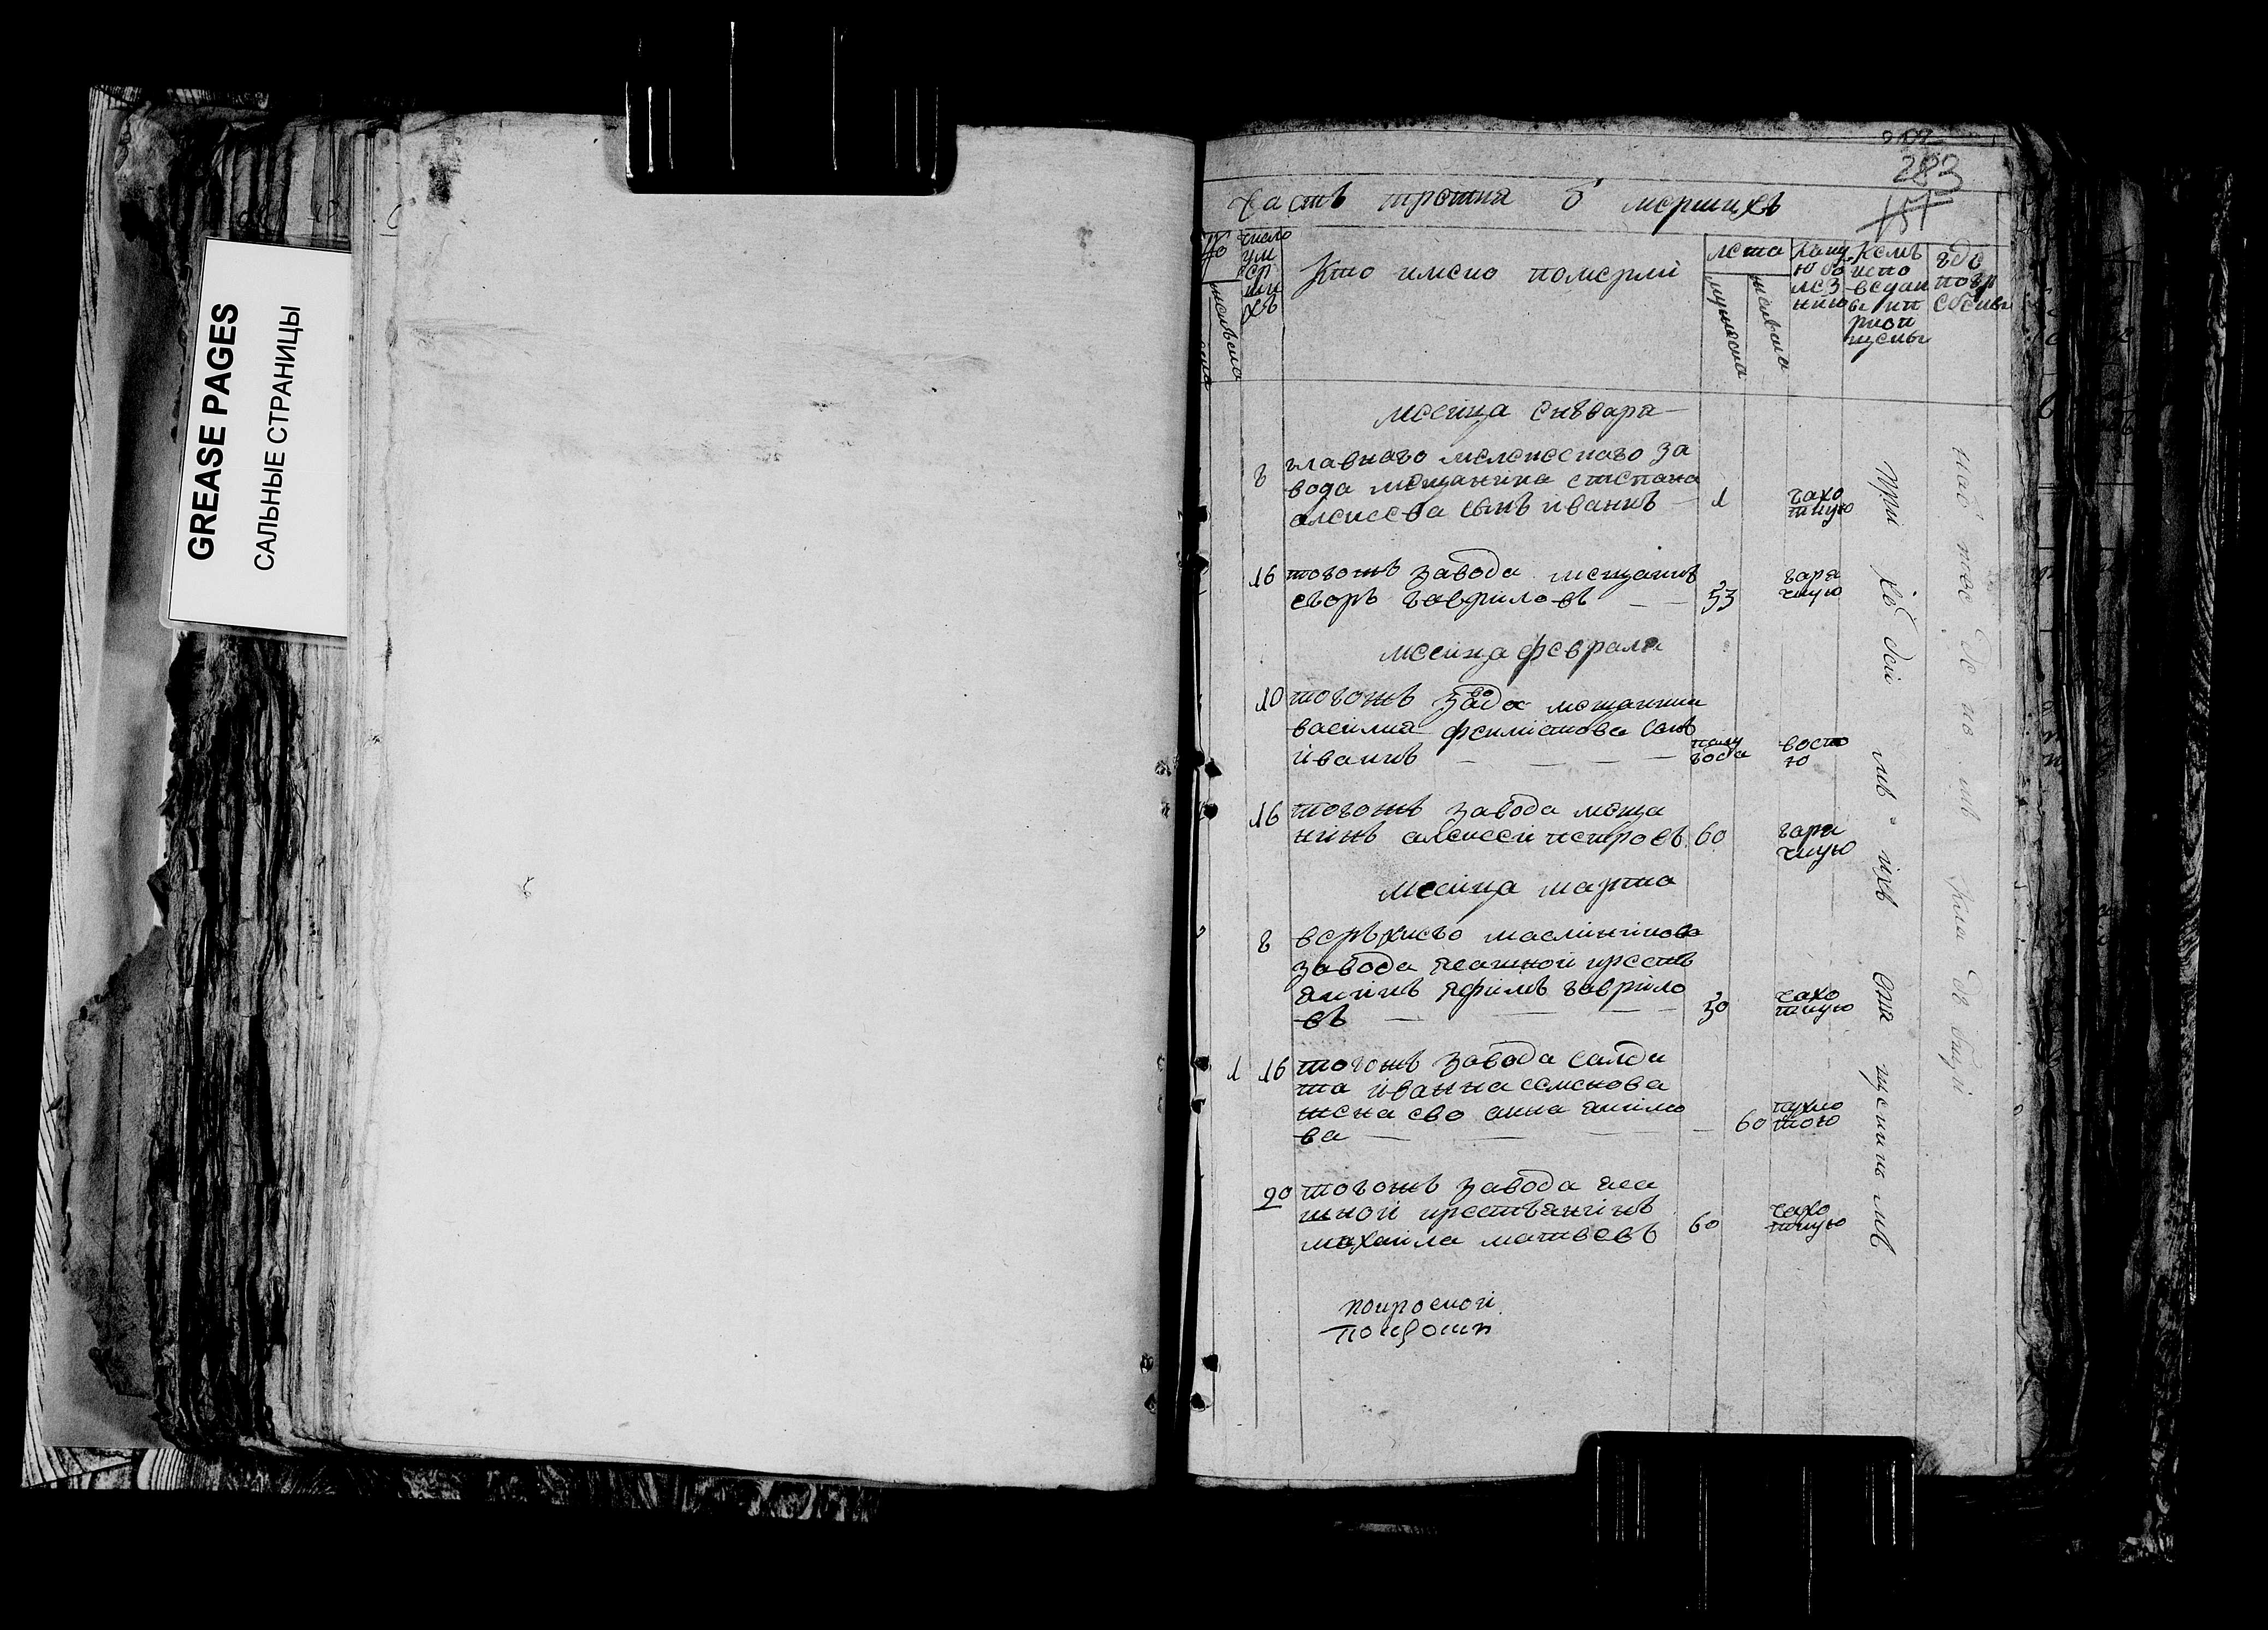 GREASE PAGES
САЛЬНЫЕ СТРАНИЦЫ
283
часть третия о мершихъ
число
ум
ер
ши
хъ
Кто имено померли
лета
мужеска
женска
какую
бо
лез
нию
Кемъ
испо
ведан
ы и п
риоб
щены
где
погр
ебены
месяца енъваря
8
главного мелекеского за
вода мещанина степана
алексеева сынъ иванъ
1
чахо
тную
16
тогожъ завода мещанинъ
егоръ гавриловъ
53
гаря
чкую
месяца февраля
10
тогожъ завода мещанина
василия филиптова сынъ
иванъ
полу
года
воспо
ю
16
тогожъ завода меща
нинъ алексей петровъ
60
гаря
чкую
месяца марта
8
верьхнего
завода ясашной крестъ
янинъ яфимъ гаврило
въ
50
чахо
тную
1
16
тогожъ завода салда
та иванна семенова
жена ево анна якимо
ва
60
20
тогожъ завода яса
шной крестьянинъ
михаила матвеевъ
60
чахо
тную